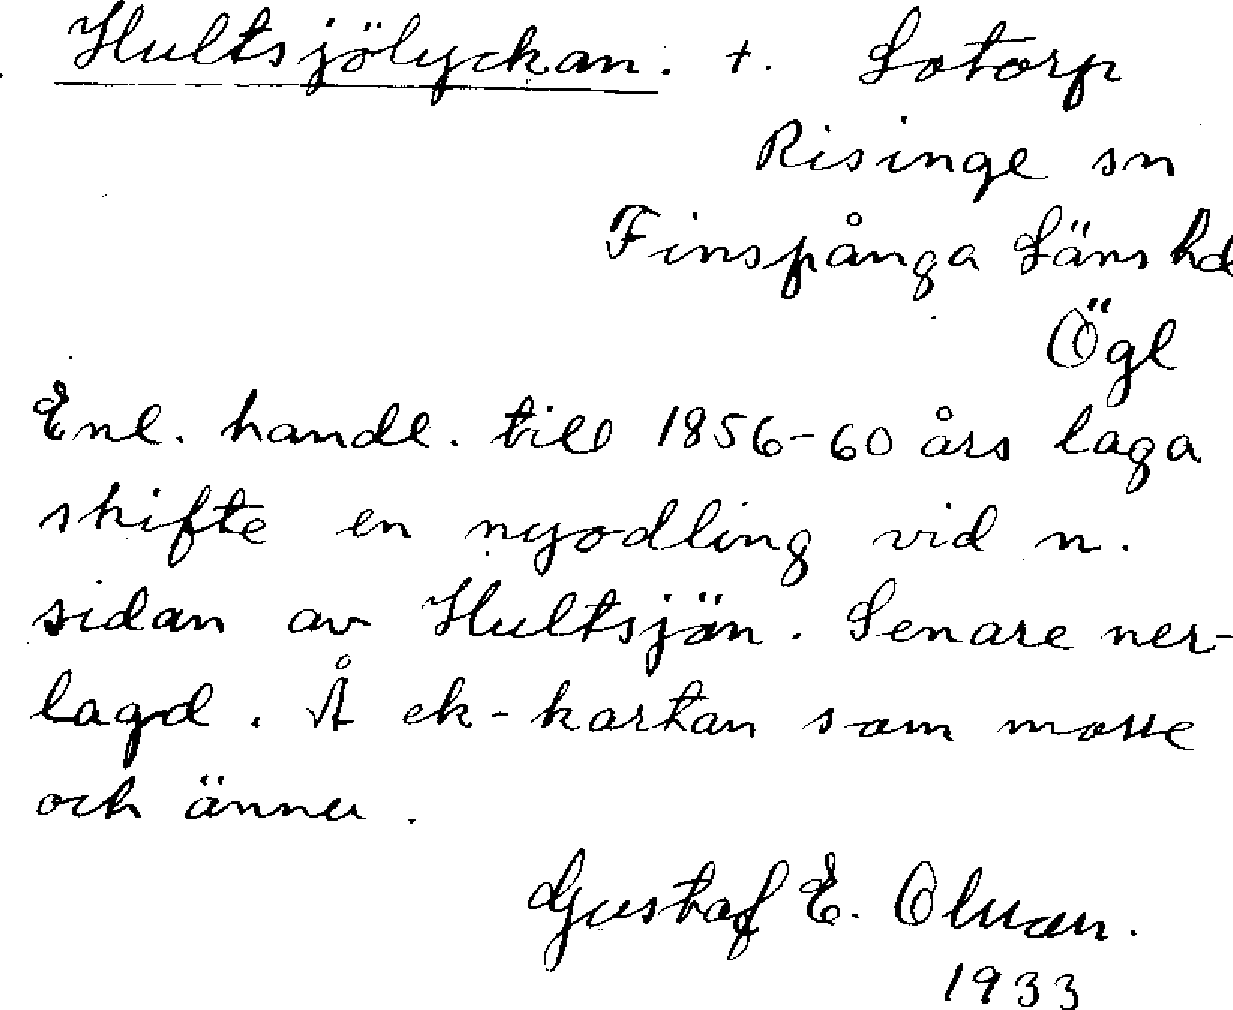 Hultsjölyckan. +. Lotorp
Risinge sn
Finspånga Läns hd
Ögl
Enl. handl. till 1856-60 års laga
skifte en nyodling vid n.
sidan av Hultsjön. Senare ner-
lagd. Å ek-kartan som mosse
och ännu.
Gustaf E. Olsson.
1933